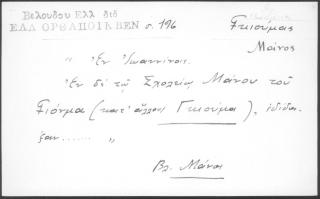 Βελουδου Ελλ διδ
ΕΛΛ ΟΡΘ ΑΠΟΙΚ ΒΕΝ σ. 196
Γκιούμας
Μάνος
" Ἐν Ἰωαννίνοις.
Ἐν δὲ τῷ Σχολείῳ Μάνου τοῦ
Γιόνμα (κατ' ἄλλους Γκιούμα), ἐδίδα-
ξαν...... "
Βλ. Μάνος